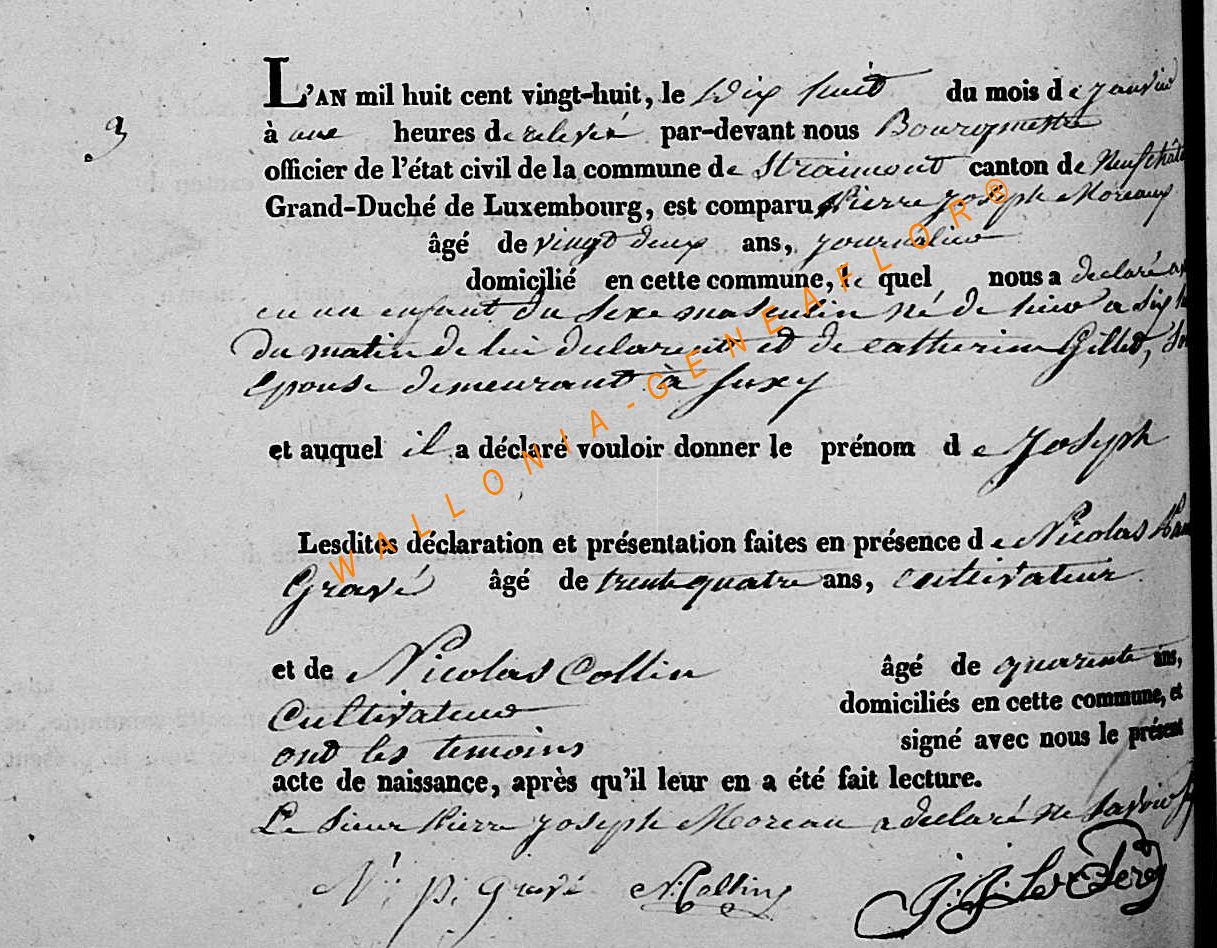 3
L'AN mil huit cent vingt-huit, le dix huit du mois de janvier
à une heures de relevé par-devant nous Bourgmestre
officier de l'état civil de la commune de Straimont canton de Neufchâte
Grand-Duché de Luxembourg, est comparu Pierre Joseph Moreaux
âgé de vingt deux ans, journalier
domicilié en cette commune, le quel nous a declaré
un enfant du sexe masculin né de hier a six
du matin de lui declarant et de Catherine Gillet,
Epouse demeurant à Suxy
et auquel il a déclaré vouloir donner le prénom de Joseph
Lesdites déclaration et présentation faites en présence de Nicolas
Gravé âgé de trente quatre ans, cultivateur
et de Nicolas Collin âgé de quarente ans,
Cultivateur domiciliés en cette commune, et
ont les temoins signé avec nous le présent
acte de naissance, après qu'il leur en a été fait lecture.
Le Sieur Pierre Joseph Moreau a declaré ne savoir
N. p. Gravé N. Collin J. J. LeClerq
WALLONIA-GENEAFLOR®